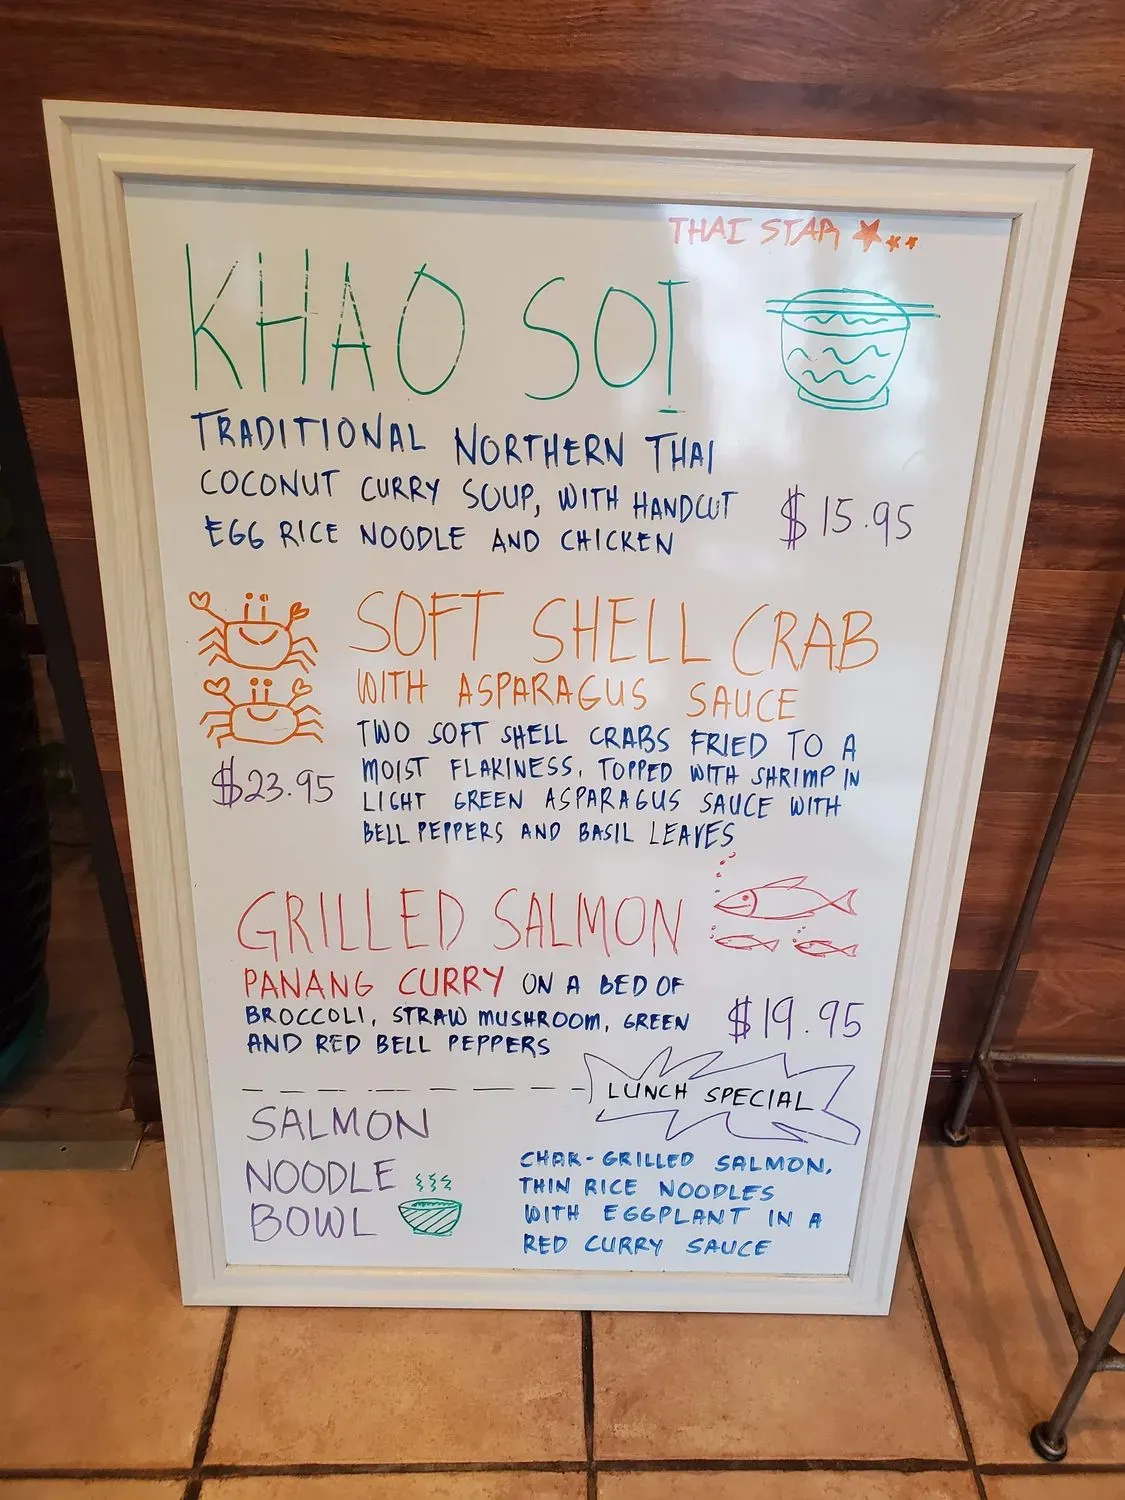 THAI STAR
KHAO SOI
TRADITIONAL NORTHERN THAI
COCONUT CURRY SOUP, WITH HANDCUT
EGG RICE NOODLE AND CHICKEN
$15.95
SOFT SHELL CRAB
WITH ASPARAGUS SAUCE
TWO SOFT SHELL CRABS FRIED TO A
MOIST FLAKINESS, TOPPED WITH SHRIMP IN
LIGHT GREEN ASPARAGUS SAUCE WITH
BELL PEPPERS AND BASIL LEAVES
$23.95
GRILLED SALMON
PANANG CURRY ON A BED OF
BROCCOLI, STRAW MUSHROOM, GREEN
AND RED BELL PEPPERS
$19.95
LUNCH SPECIAL
SALMON
NOODLE
BOWL
CHAR-GRILLED SALMON,
THIN RICE NOODLES
WITH EGGPLANT IN A
RED CURRY SAUCE